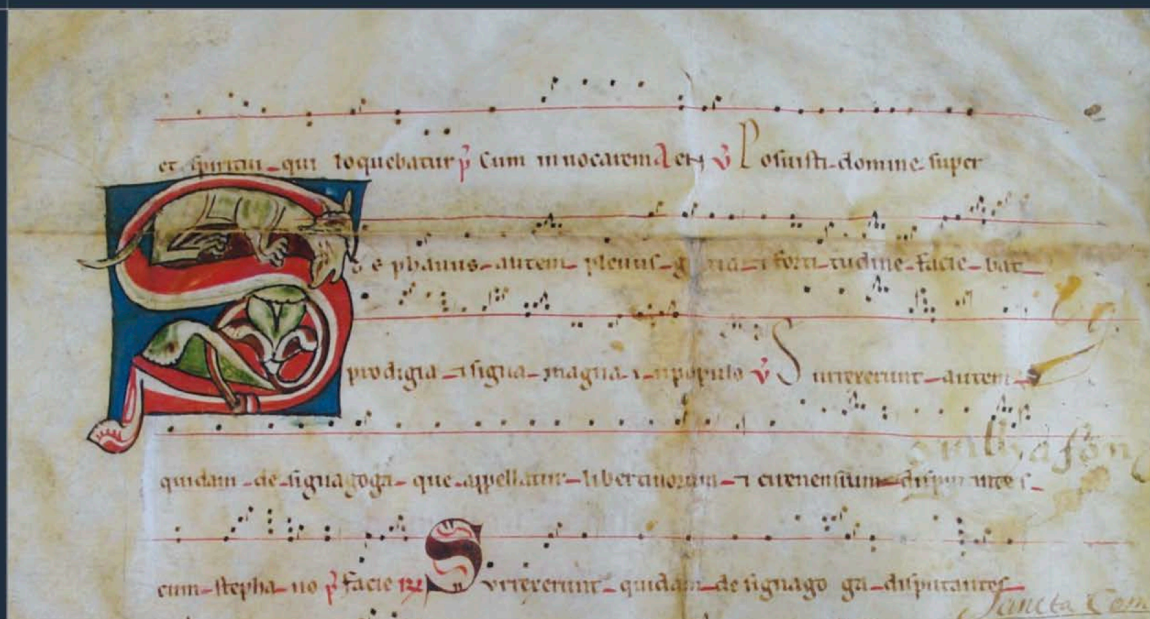 et spiritui qui loquebatur p̄ Cum invocarem A et v̄ Posuisti domine super
Stephanus autem plenus g tia ⁊ forti tudine facie bat
prodigia ⁊ signa magna i npopulo v̄ Surrexerunt autem
quidam de signagoga que appellatur libertinorum ⁊ cirenensium disputantes
cum stepha no p̄ facie Surrexerunt quidam de signago ga disputantes
Sancta Com